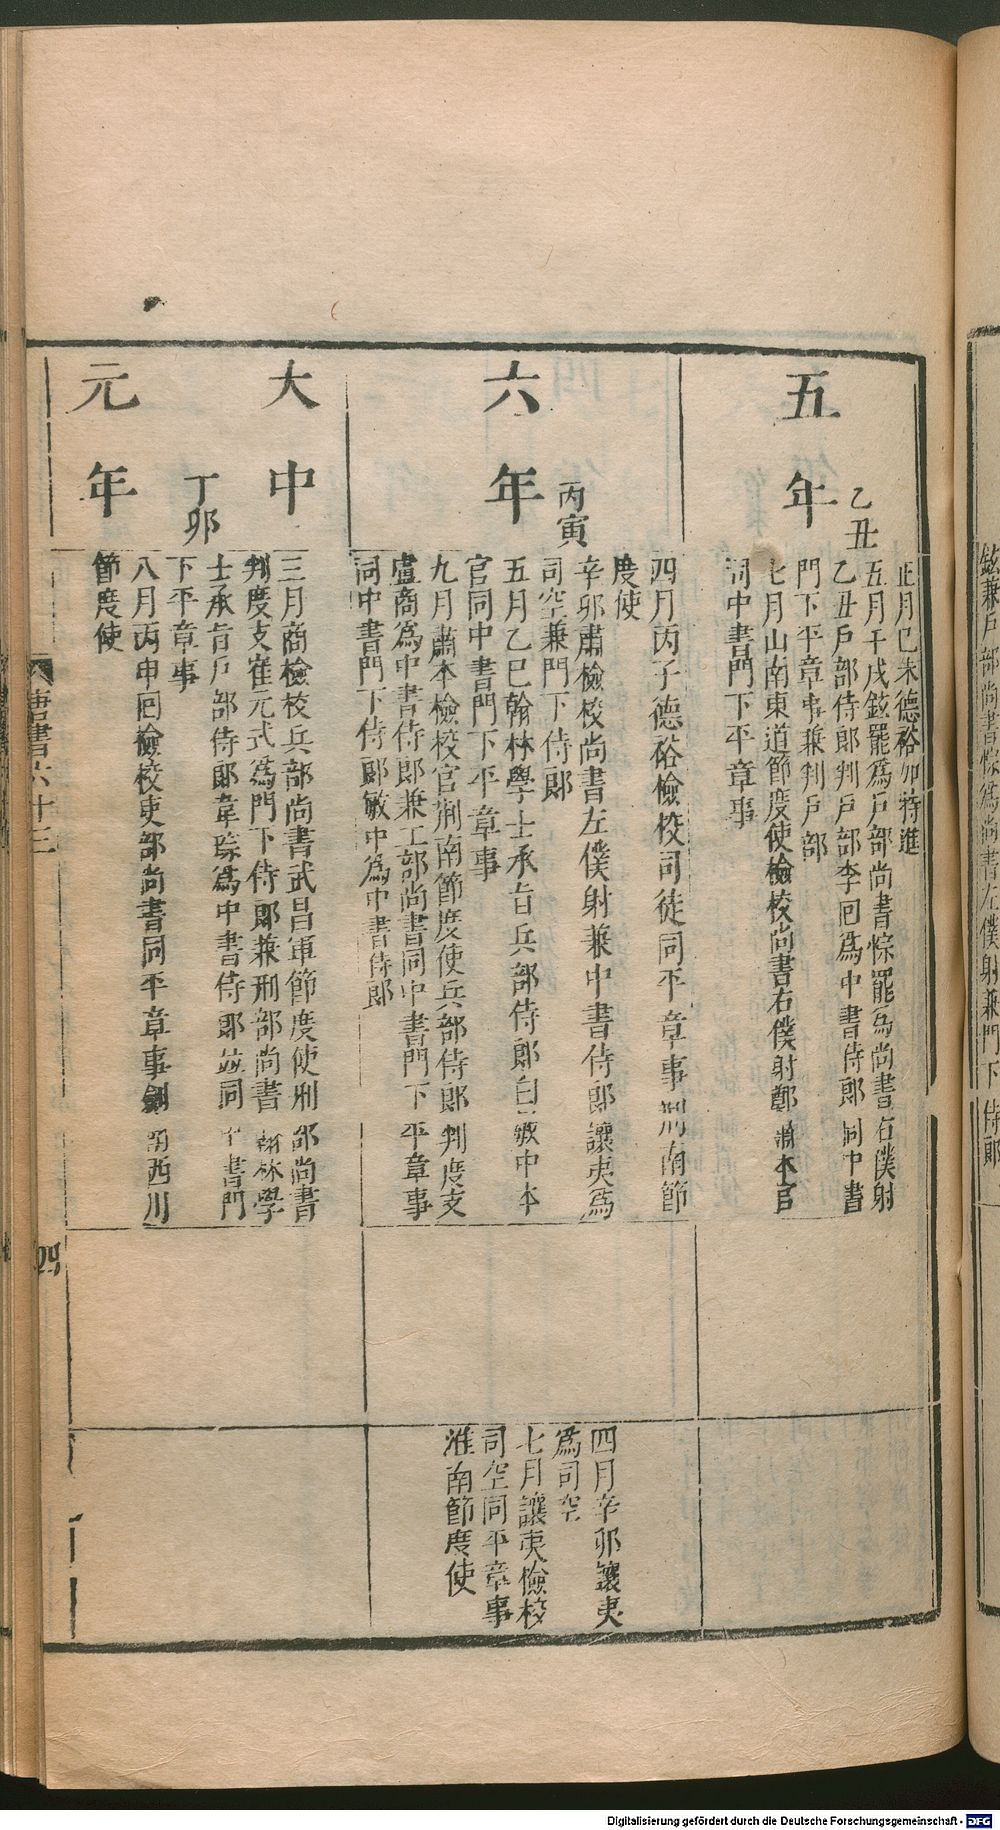 鉉兼戶部尚書悰爲尚書左僕射兼門下侍郎
五年
乙丑
正月己未德裕加特進
五月壬戌鉉罷爲戶部尚書悰罷爲尚書右僕射
乙丑戶部侍郎判戶部李回爲中書侍郎同中書
門下平章事兼判戶部
七月山南東道節度使檢校尚書右僕射鄭肅本官
同中書門下平章事
六年
丙寅
四月丙子德裕檢校司徒同平章事荆南節
度使
辛卯肅檢校尚書左僕射兼中書侍郎讓夷爲
司空兼門下侍郎
五月乙巳翰林學士承旨兵部侍郎白敏中本
官同中書門下平章事
九月肅本檢校官荆南節度使兵部侍郎判度支
盧商爲中書侍郎兼工部尚書同中書門下平章事
同中書門下侍郎敏中爲中書侍郎
四月辛卯讓夷
爲司空
七月讓夷檢校
司空同平章事
淮南節度使
大中
丁卯
元年
三月商檢校兵部尚書武昌軍節度使刑部尚書
判度支崔元式爲門下侍郎兼刑部尚書翰林學
士承旨戶部侍郎韋琮爲中書侍郎並同中書門
下平章事
八月丙申回檢校吏部尚書同平章事劍南西川
節度使
唐書六十三
29
Digitalisierung gefördert durch die Deutsche Forschungsgemeinschaft - DFG